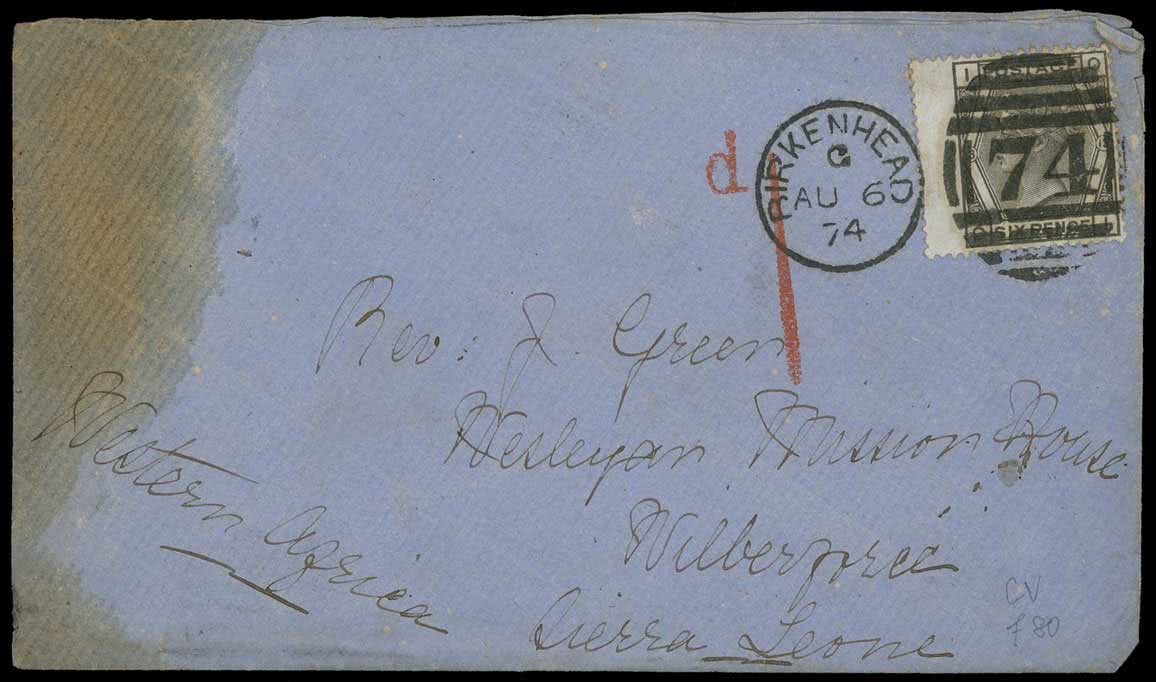 I POSTAGE Q
74
SIX PENCE
BIRKENHEAD
G
AU 6
74
d
1
Rev: J. Green
Wesleyan Mission House
Wilberforce
Sierra Leone
Western Africa
CV
£80